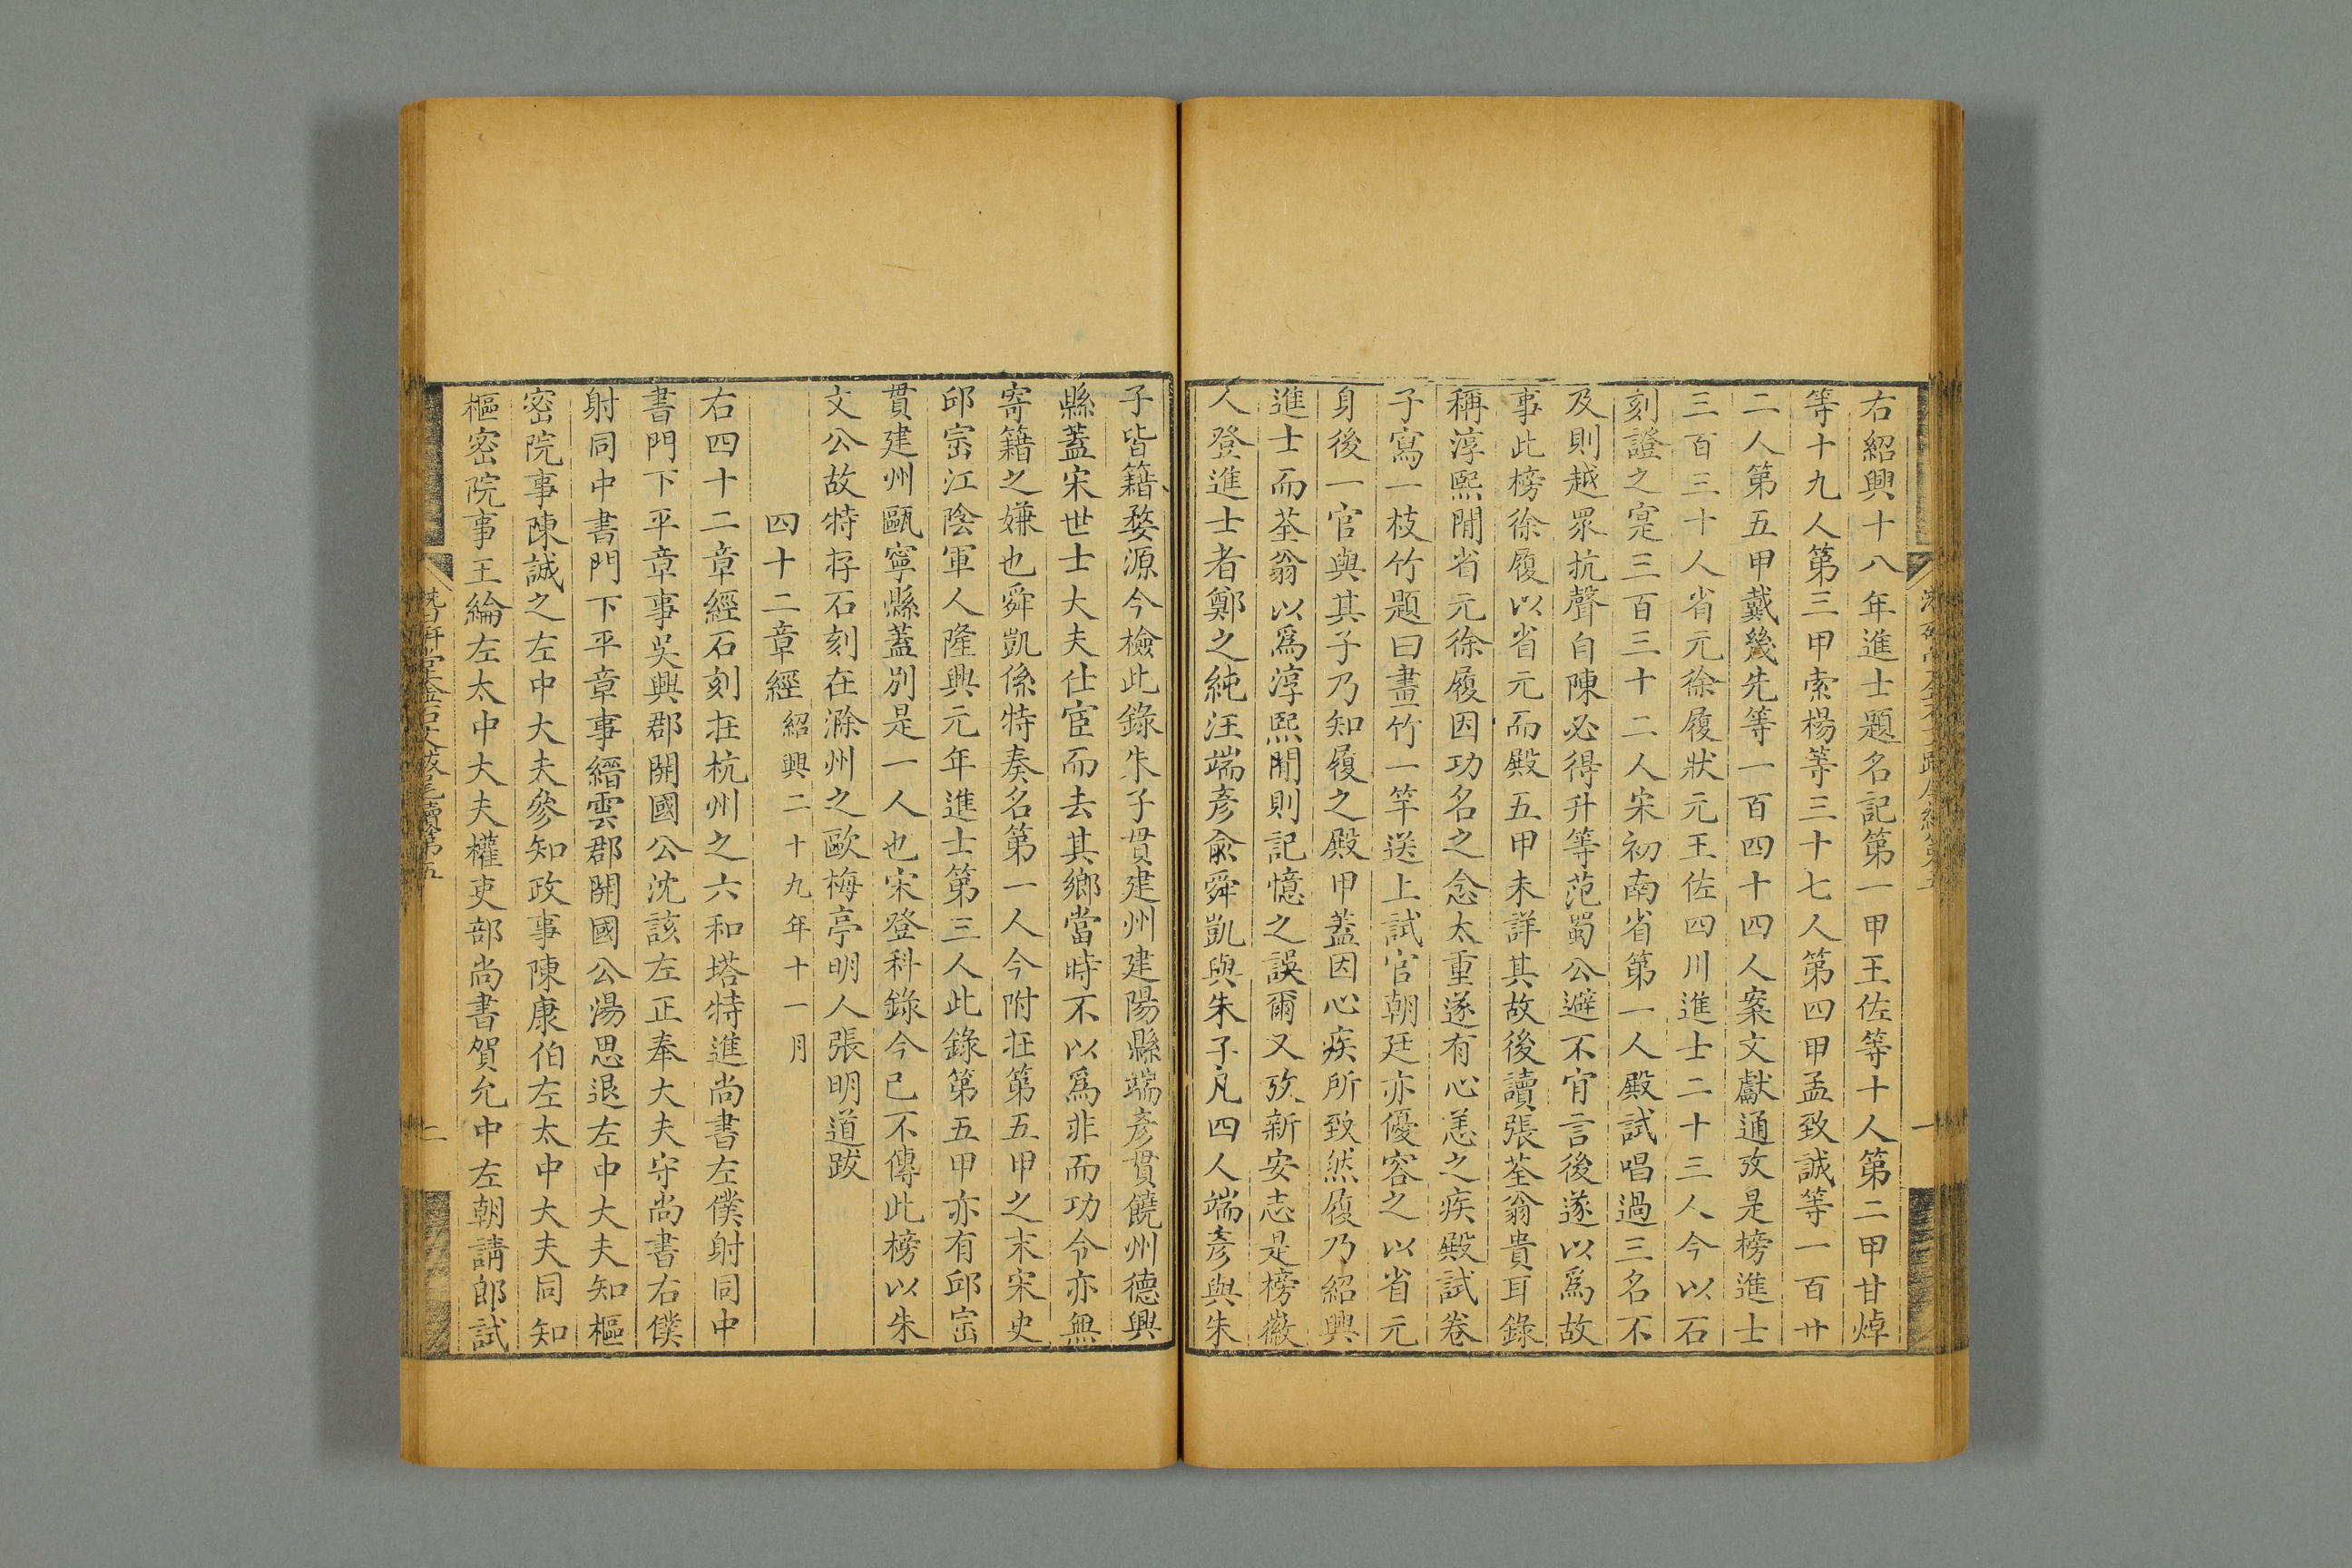 右紹興十八年進士題名記第一甲王佐等十人第二甲甘焯
等十九人第三甲索楊等三十七人第四甲孟致誠等一百廿
二人第五甲戴幾先等一百四十四人案文獻通攷是榜進士
三百三十人省元徐履狀元王佐四川進士二十三人今以石
刻證之寔三百三十二人宋初南省第一人殿試唱過三名不
及則越眾抗聲自陳必得升等范蜀公避不肯言後遂以爲故
事此榜徐履以省元而殿五甲未詳其故後讀張荃翁貴耳錄
稱淳熙閒省元徐履因功名之念太重遂有心恙之疾殿試卷
子寫一枝竹題曰畫竹一竿送上試官朝廷亦優容之以省元
身後一官與其子乃知履之殿甲蓋因心疾所致然履乃紹興
進士而荃翁以爲淳熙閒則記憶之誤爾又攷新安志是榜徽
人登進士者鄭之純汪端彥俞舜凱與朱子凡四人端彥與朱
子皆籍婺源今檢此錄朱子貫建州建陽縣端彥貫饒州德興
縣蓋宋世士大夫仕宦而去其鄉當時不以爲非而功令亦無
寄籍之嫌也舜凱係特奏名第一人今附在第五甲之末宋史
邱崈江陰軍人隆興元年進士第三人此錄第五甲亦有邱崈
貫建州甌寧縣蓋別是一人也宋登科錄今已不傳此榜以朱
文公故特存石刻在滁州之歐梅亭明人張明道跋
四十二章經 紹興二十九年十一月
右四十二章經石刻在杭州之六和塔特進尚書左僕射同中
書門下平章事吳興郡開國公沈該左正奉大夫守尚書右僕
射同中書門下平章事縉雲郡開國公湯思退左中大夫知樞
密院事陳誠之左中大夫參知政事陳康伯左太中大夫同知
樞密院事王綸左太中大夫權吏部尚書賀允中左朝請郎試
潛研堂金石文跋尾續第五
二